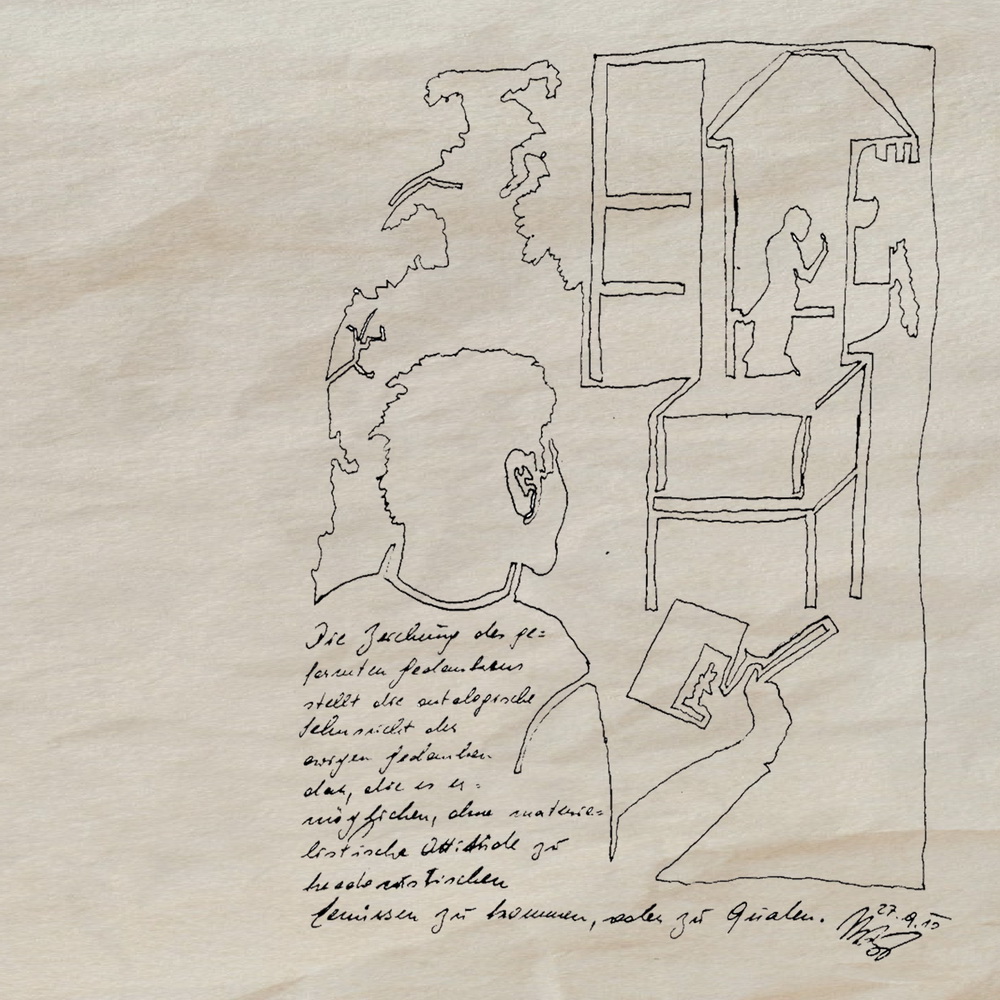 Die Zeichnung des ge=
formten Gedankens
stellt die ontologische
Sehnsucht des
ewigen Gedanken
dar, die es er=
möglichen, ohne materia=
listische Attitüde zu
hedonistischen
Genüssen zu kommen, oder zu Qualen.
27.9.15